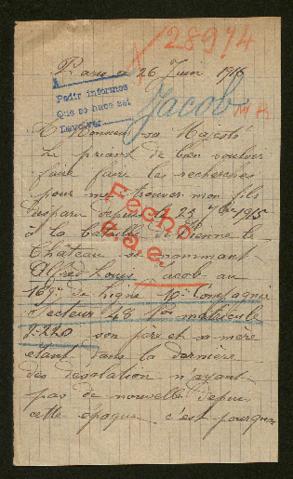 28974
Paris le 26 Juin 1916
A
Pedir informes
Que se hace así
Devolver
Jacob
Monsieur sa Majesté
le priant de bien vouloir
faire faire les recherches
pour me trouver mon fils
disparu depuis le 25 7bre 1915
à la bataille de Vienne le
Chateau se nommant
Alfred Louis Jacob au
169e de ligne 10e Compagnie
Secteur 48 matricule
son père et sa mère
étant dans la dernière
des désolation n'ayant
pas de nouvelle depuis
cette époque c'est pourquoi
Fecho